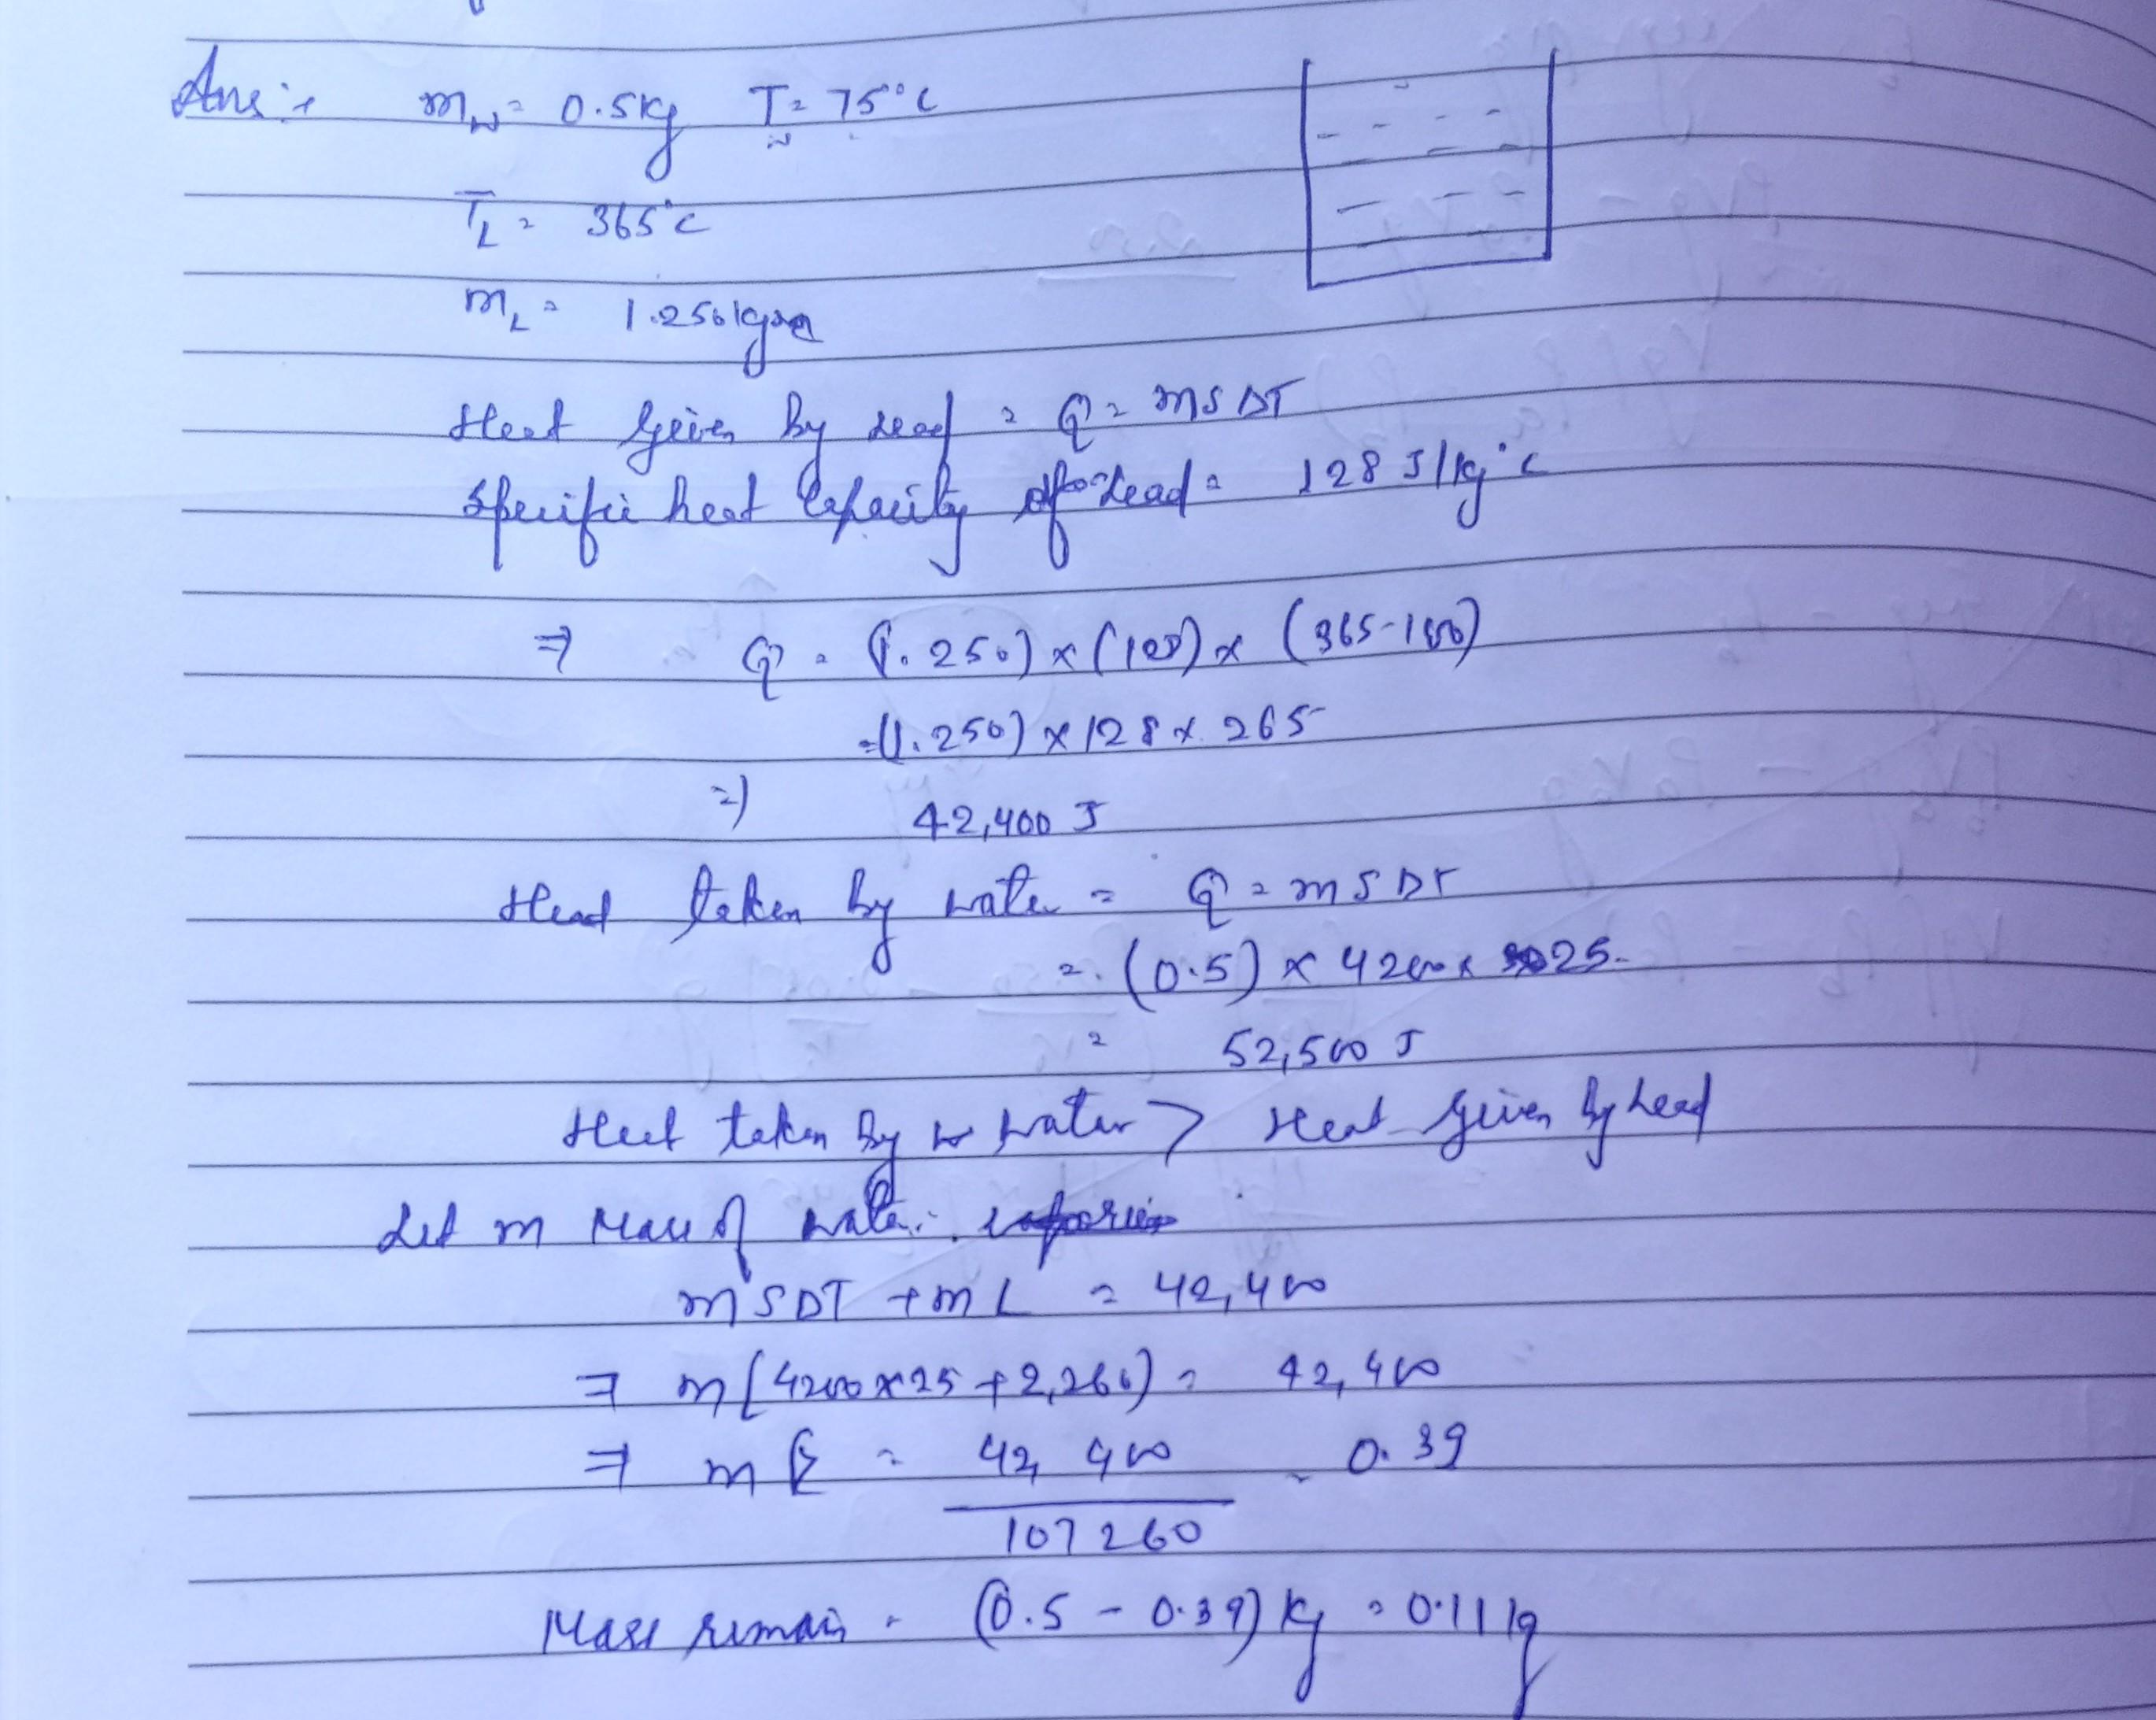 Ans:- m_w = 0.5kg T_w = 75°C
T_L = 365°C
m_L = 1.250kg
Heat given by Lead = Q = msΔT
Specific heat Capacity of Lead = 128 J/kg°C
⇒ Q = (1.250) × (128) × (365-100)
= (1.250) × 128 × 265
⇒ 42,400 J
Head taken by water = Q = msΔT
= (0.5) × 4200 × 25
= 52,500 J
Heat taken by water > Heat given by Lead
Let m Mass of water
msΔT + mL = 42,400
⇒ m(4200×25 + 2,260) = 42,400
⇒ m = 42,400 / 107260 = 0.39
Mass remain = (0.5 - 0.39) kg = 0.11 kg